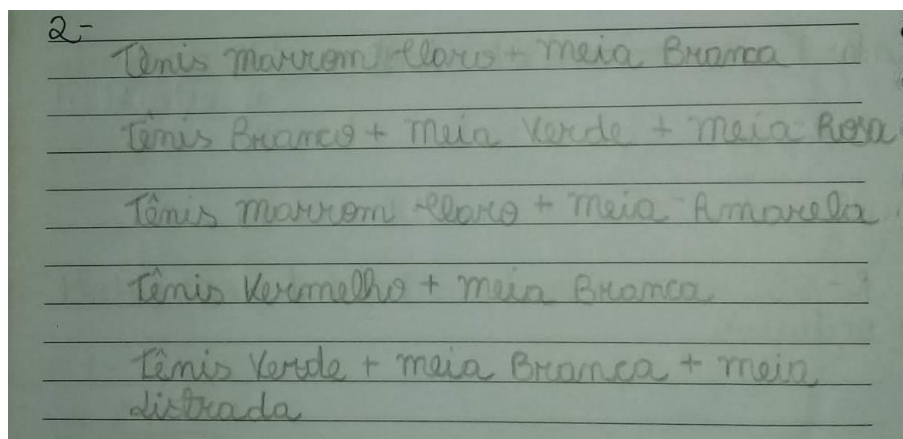 2-
Tênis marrom claro + meia Branca
Tênis Branco + meia Verde + meia Rosa
Tênis marrom claro + meia Amarela
Tênis Vermelho + meia Branca
Tênis Verde + meia Branca + meia
listrada